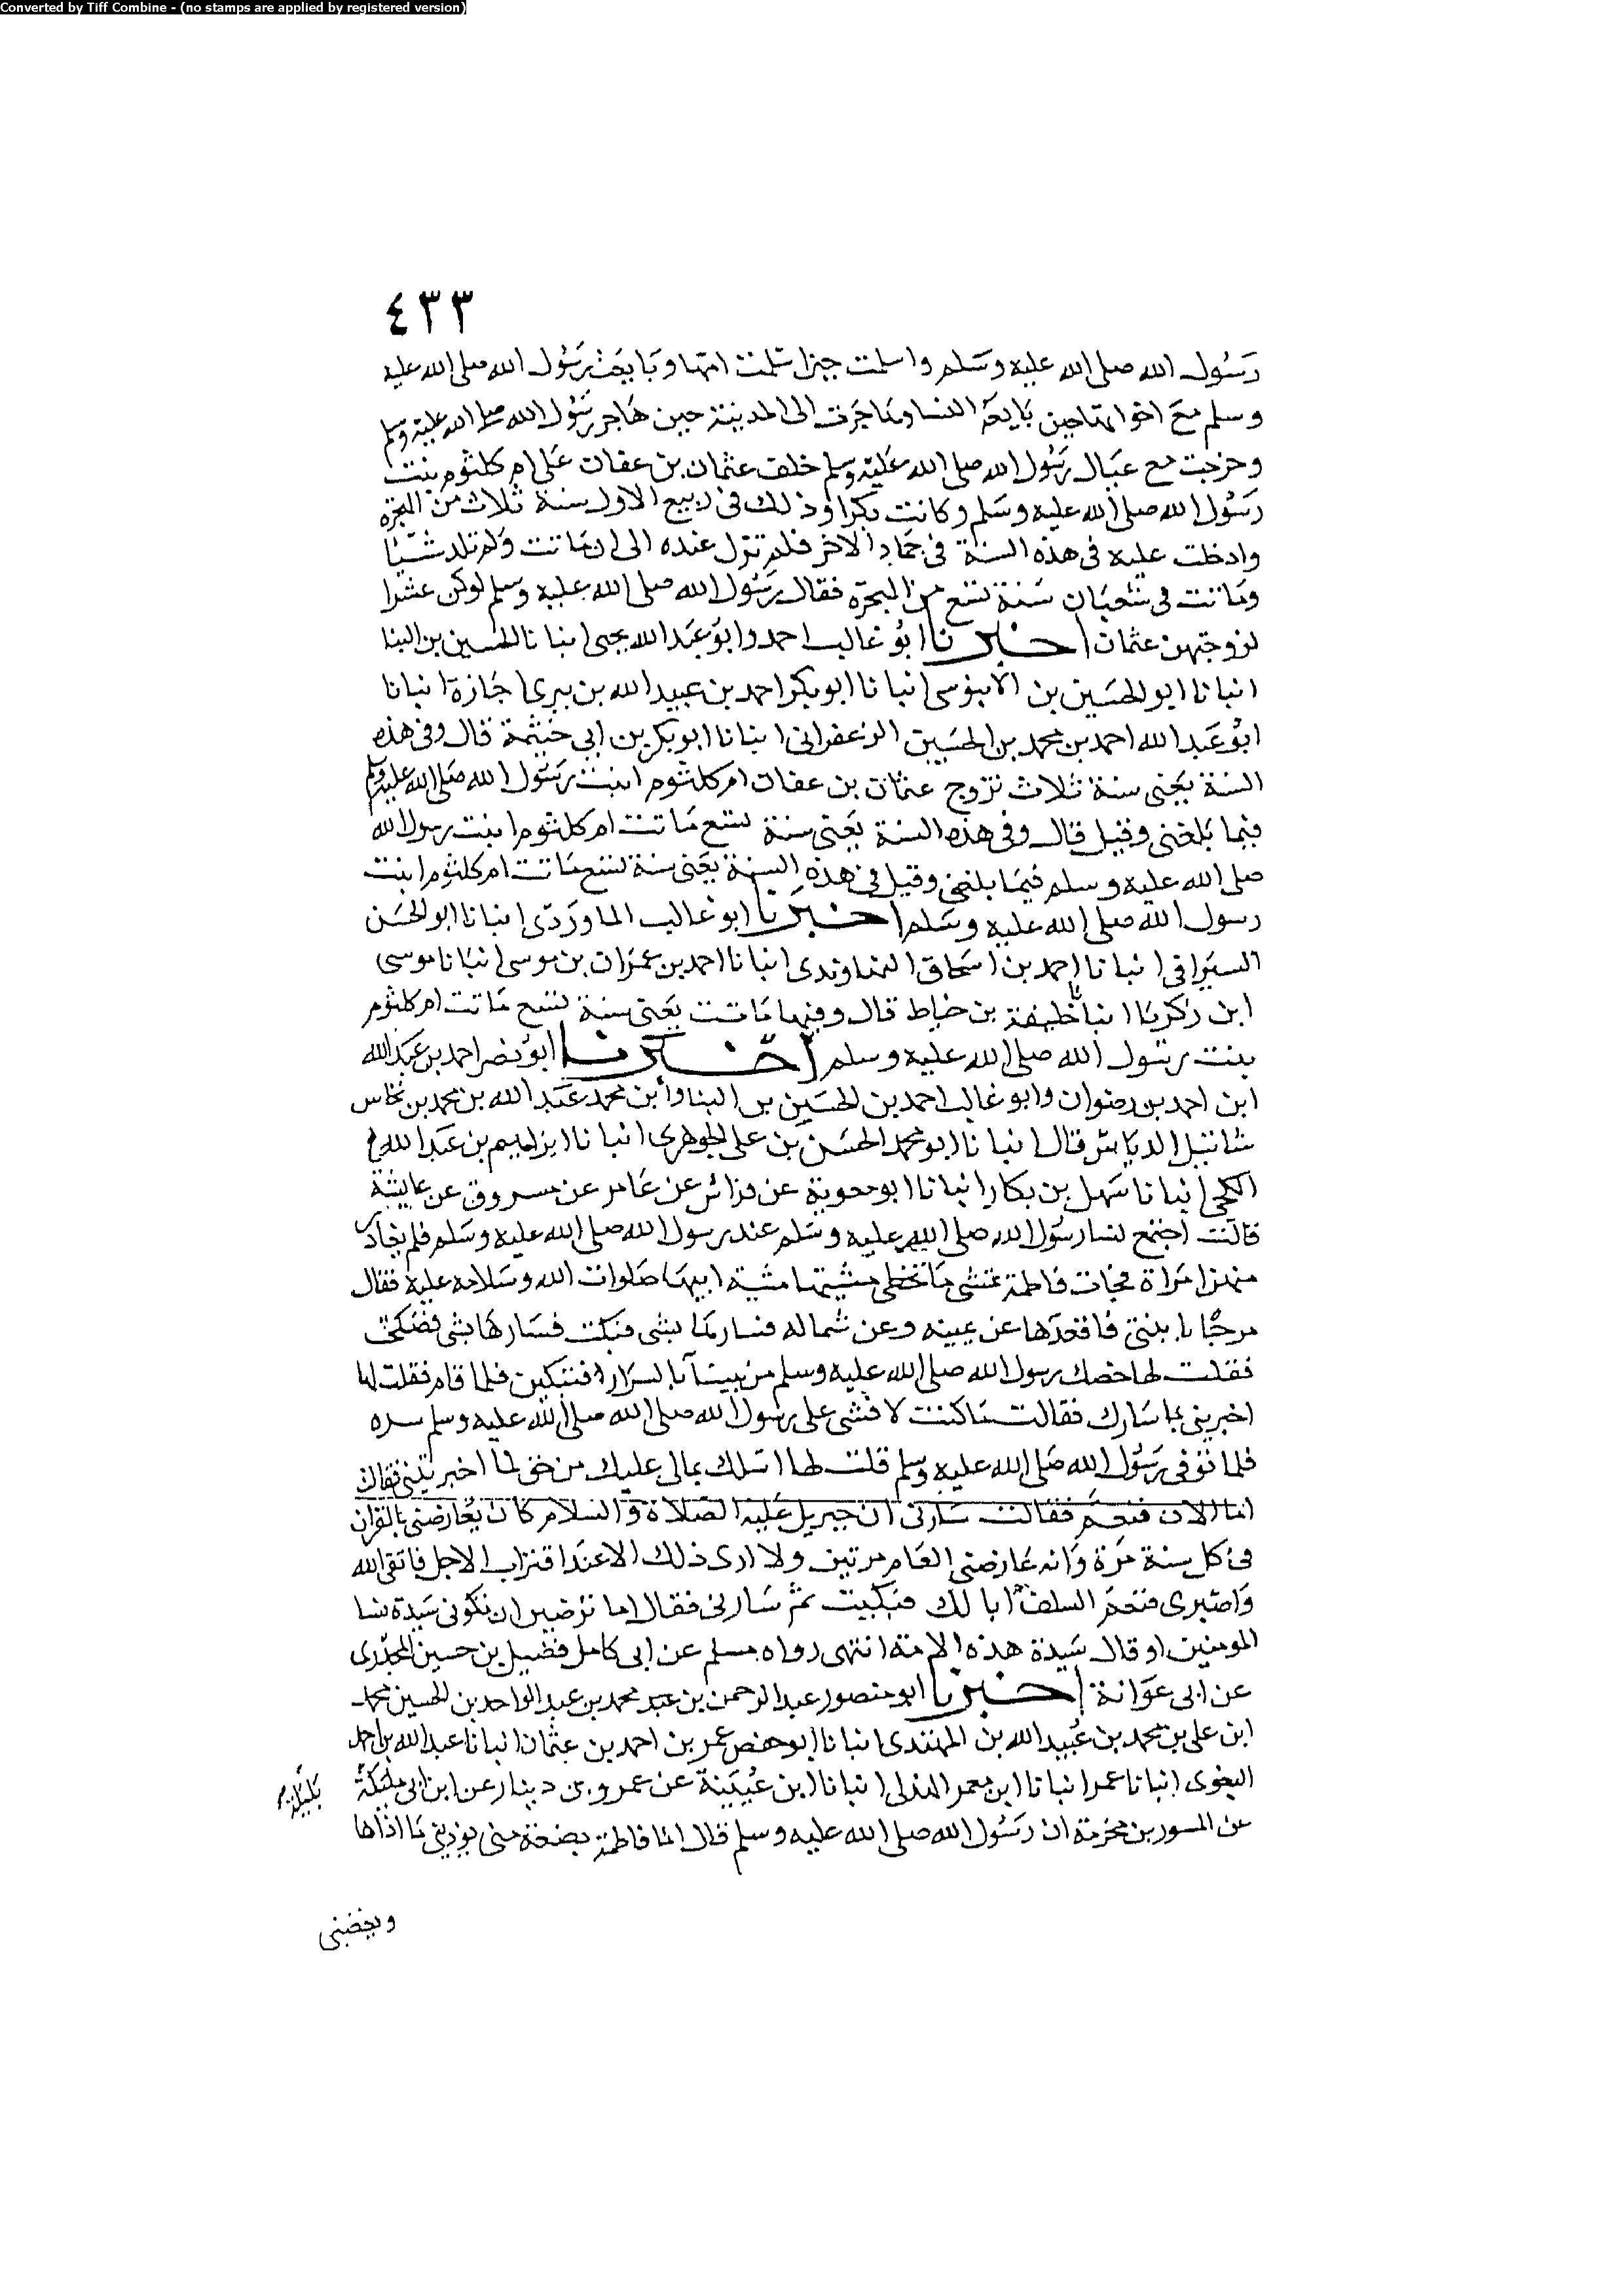 Converted by Tiff Combine - (no stamps are applied by registered version)
٤٣٣
رسول الله صلى الله عليه وسلم واسلمت حين اسلمت امها وبايعت رسول الله صلى الله عليه
وسلم مع اخواتها حين بايعه النسا وهاجرت الى المدينة حين هاجر رسول الله صلى الله عليه وسلم
وخرجت مع عيال رسول الله صلى الله عليه وسلم خلف عثمان بن عفان على ام كلثوم بنت
رسول الله صلى الله عليه وسلم وكانت بكرا وذلك في ربيع الاول سنة ثلاث من الهجرة
وادخلت عليه فى هذه السنة فى جمادى الاخر فلم تزل عنده الى ان ماتت ولم تلد شيا
وماتت فى شعبان سنة تسع من الهجرة فقال رسول الله صلى الله عليه وسلم لو كن عشرا
لزوجتهن عثمان اخبرنا ابو غالب احمد وابو عبد الله يحيى انبانا الحسين بن البنا
انبانا ابو الحسين بن الابنوسى انبانا ابو بكر احمد بن عبيد الله بن بيرى اجازة انبانا
ابو عبد الله احمد بن محمد بن الحسين الزعفرانى انبانا ابو بكر بن ابي خيثمة قال وفى هذه
السنة يعنى سنة ثلاث تزوج عثمان بن عفان ام كلثوم ابنت رسول الله صلى الله عليه وسلم
فيما بلغنى وقيل قال وفى هذه السنة يعنى سنة تسع ماتت ام كلثوم ابنت رسول الله
صلى الله عليه وسلم فيما بلغنى وقيل في هذه السنة يعنى سنة تسع ماتت ام كلثوم ابنت
رسول الله صلى الله عليه وسلم اخبرنا ابو غالب الماوردى انبانا ابو الحسن
السيرافى انبانا احمد بن اسحاق النهاوندى انبانا احمد بن عمران بن موسى انبانا موسى
ابن زكريا انبا خليفة بن خياط قال وفيها ماتت يعنى سنة تسع ماتت ام كلثوم
بنت رسول الله صلى الله عليه وسلم اخبرنا ابو نصر احمد بن عبد الله
ابن احمد بن رضوان وابو غالب احمد بن الحسين بن البنا وابن محمد عبد الله بن محمد بن نخاس
شاتيل الدباس قال انبانا ابو محمد الحسن بن على الجوهرى انبانا ابراهيم بن عبد الله
الكجى انبانا سهل بن بكار انبانا ابو معوية عن فراس عن عامر عن مسروق عن عايشة
قالت اجتمع نسا رسول الله صلى الله عليه وسلم عند رسول الله صلى الله عليه وسلم فلم يغادر
منهن امراة فجات فاطمة تمشى ما تخطى مشيتها مشية ابيها صلوات الله وسلامه عليه فقال
مرحبا يا بنتى فاقعدها عن يمينه وعن شماله فسارها بشى فبكت فسارها بشى فضحكت
فقلت لها خصك رسول الله صلى الله عليه وسلم من بيننا بالسرار فتبكين فلما قام فقلت لها
اخبرينى بما سارك فقالت ما كنت لافشى على رسول الله صلى الله صلى الله عليه وسلم سره
فلما توفى رسول الله صلى الله عليه وسلم قلت لها اسلك بمالى عليك من حق لما اخبرتينى فقالت
اما الان فنعم فقالت سارنى ان جبريل عليه الصلاة والسلام كان يعارضنى بالقران
فى كل سنة مرة وانه عارضنى العام مرتين ولا ارى ذلك الا عند اقتراب الاجل فاتقى الله
واصبرى فنعم السلف انا لك فبكيت ثم سارنى فقال اما ترضين ان تكونى سيدة نسا
المومنين او قال سيدة هذه الامة انتهى رواه مسلم عن ابى كامل فضيل بن حسين الجحدرى
عن ابى عوانة اخبرنا ابو منصور عبد الرحمن بن عبد محمد بن عبد الواحد بن الحسين محمد
ابن على بن محمد بن عبيد الله بن المهتدى انبانا ابو حفص عمر بن احمد بن عثمان انبانا عبد الله بن احمد
البغوى انبانا عمر انبانا ابن معمر الهذلى انبانا ابن عيينة عن عمرو بن دينار عن ابن ابى مليكة
عن المسور بن مخرمة ان رسول الله صلى الله عليه وسلم قال انما فاطمة بضعة منى يوذينى ما اذاها
ويغضبنى